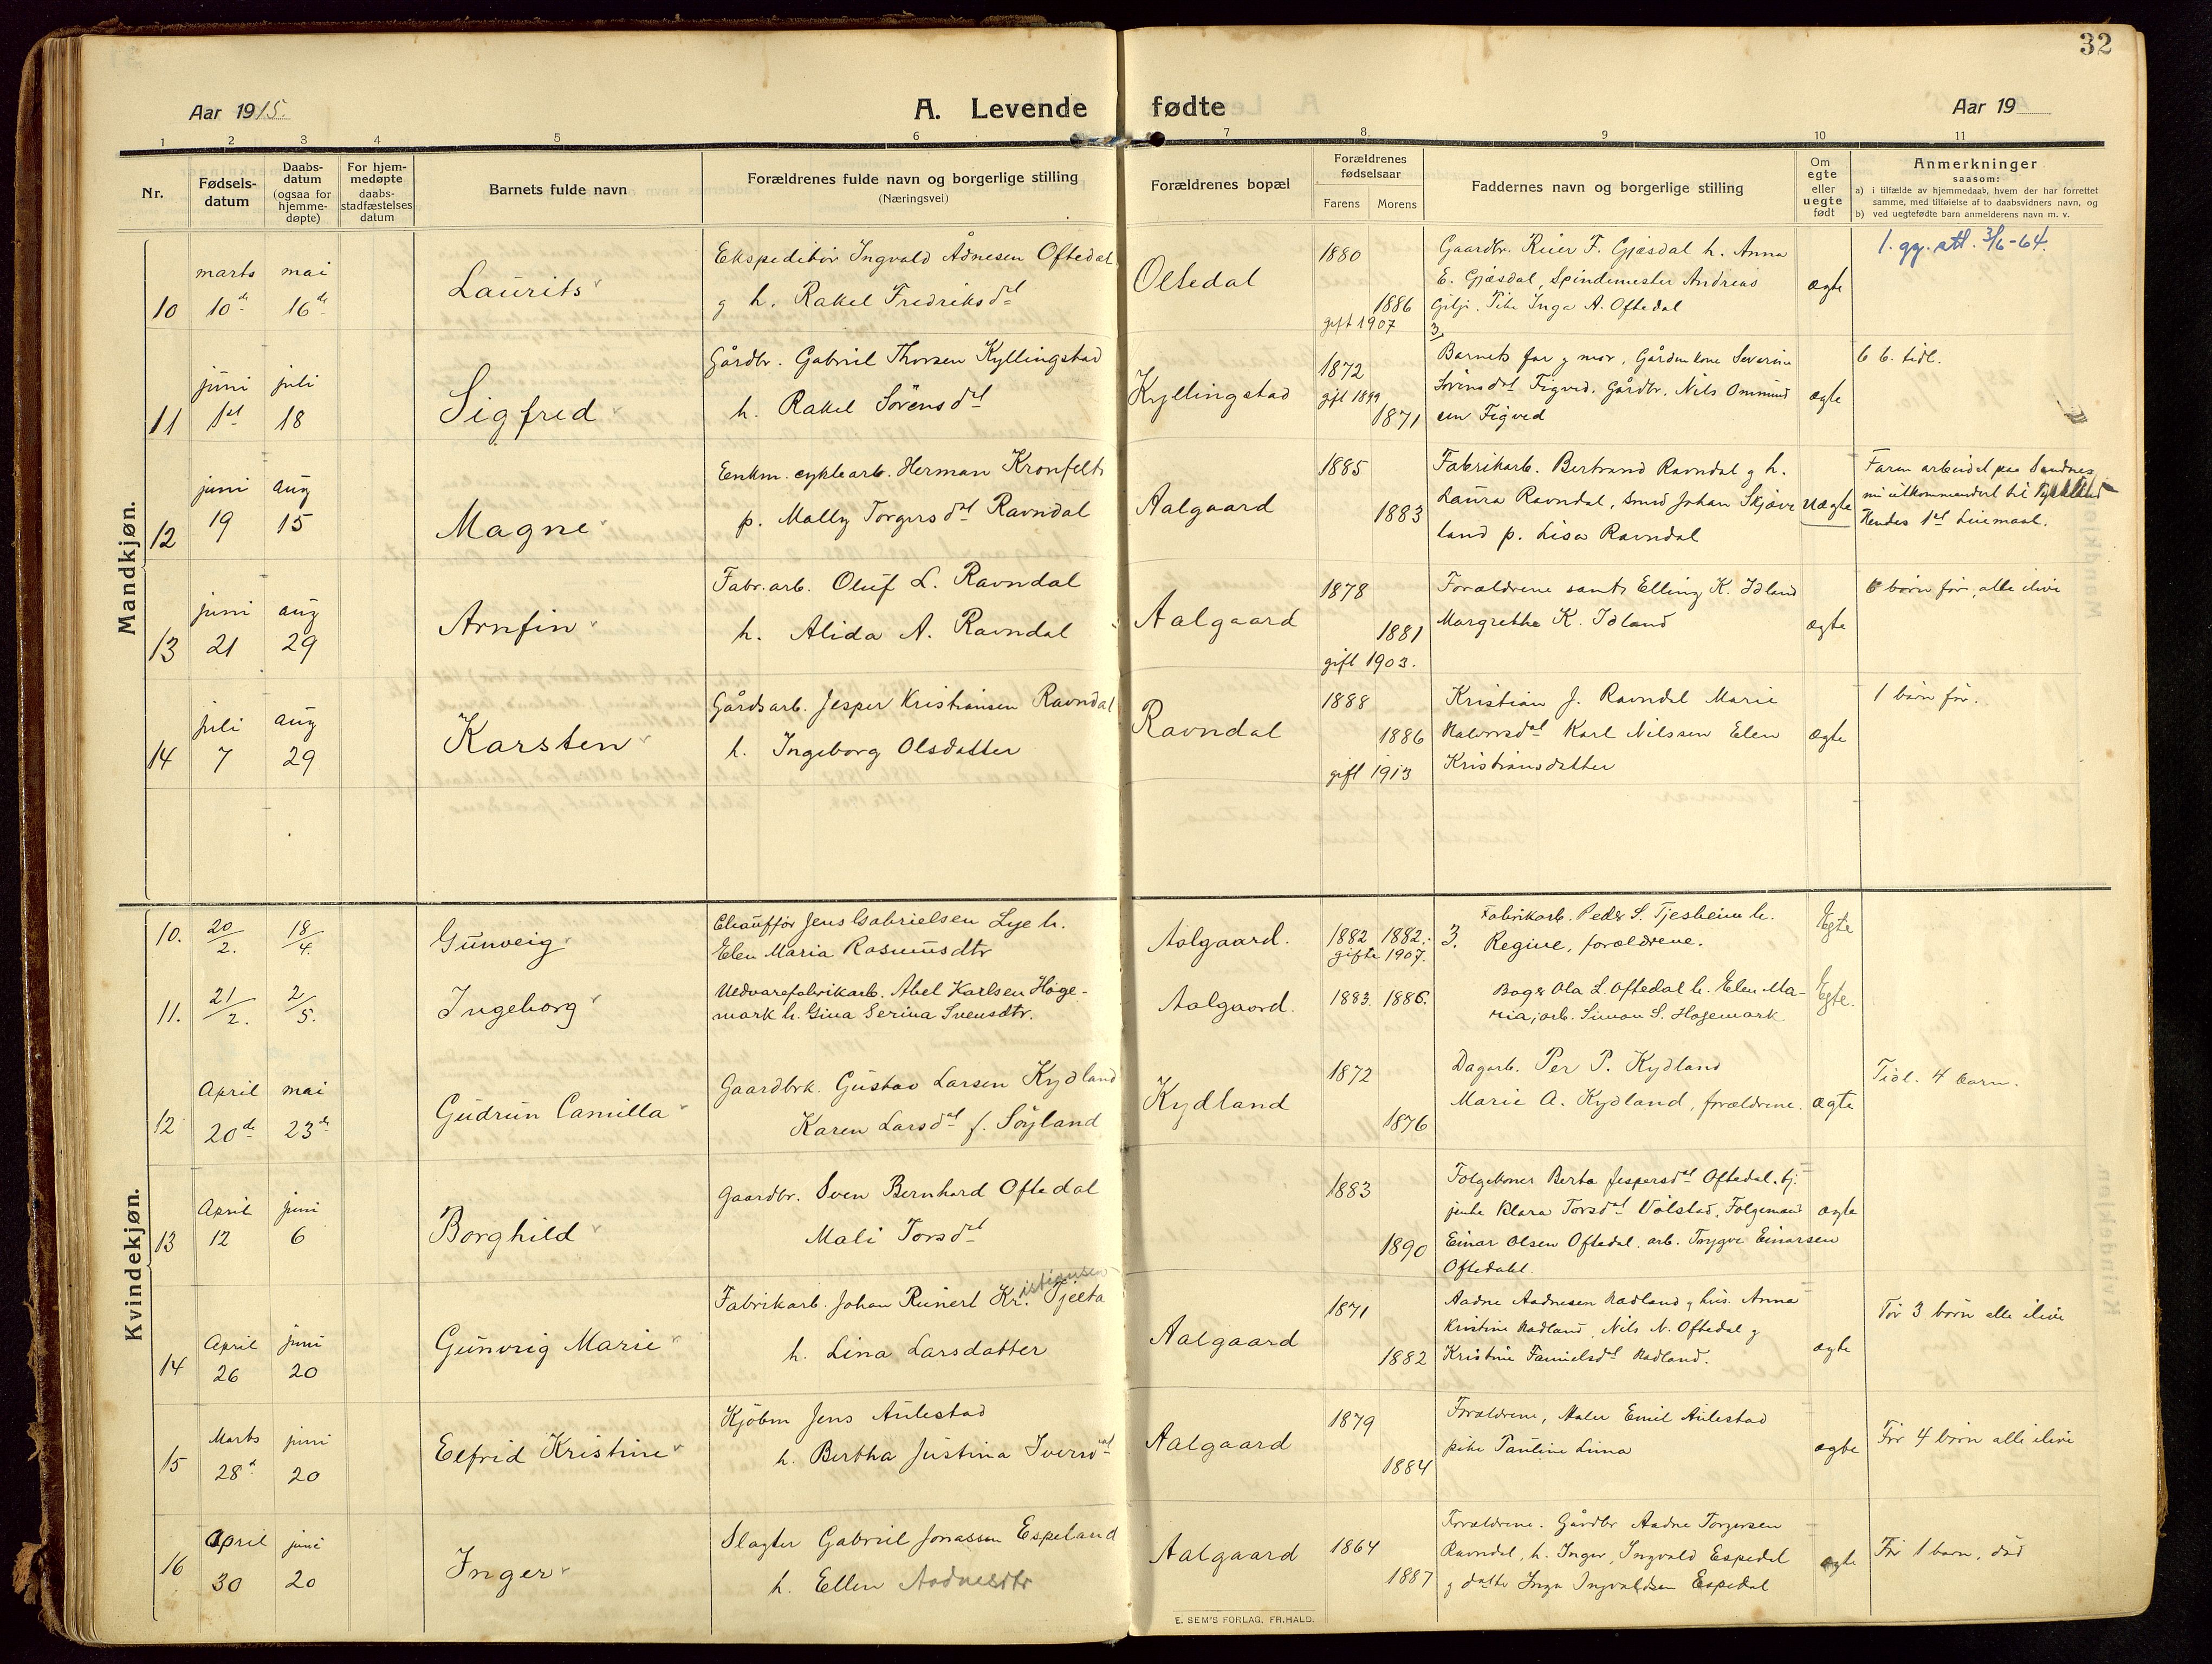 32
Aar 1915.
A. Levende fødte
Aar 19
1 2 3 4 5 6 7 8 9 10 11
Nr.
Fødsels-
datum
Daabs-
datum
(ogsaa for
hjemme-
døpte)
For hjem-
medøpte
daabs-
stadfæstelses
datum
Barnets fulde navn
Forældrenes fulde navn og borgerlige stilling
(Næringsvei)
Forældrenes bopæl
Forældrenes
fødselsaar
Farens Morens
Faddernes navn og borgerlige stilling
Om
egte
eller
uegte
født
Anmerkninger
saasom:
a) i tilfælde av hjemmedaab, hvem der har forrettet
samme, med tilføielse af to daabsvidners navn, og
b) ved uegtefødte barn anmelderens navn m. v.
Mandkjøn.
10
marts
10de
mai
16de
Laurits
Ekspeditör Ingvald Ådnesen Oftedal
g h. Rakel Fredriksdtl
Oltedal
1880
1886
gift 1907
Gaardbr. Reier F. Gjæsdal h. Anna
E. Gjæsdal, Spindemester Andreas
Gilje. Pike Inga A. Oftedal
3.
ægte
1. gg. att. 3/6-64.
11
juni
1st
juli
18
Sigfred
Gårdbr. Gabriel Thorsen Kyllingstad
h. Rakel Sörensdtl
Kyllingstad
1872
gift 1899
1871
Barnets far g mor, Gårdm kone Severine
Sörensdtl Figved. Gårdbr. Nils Ommund
sen Figved
ægte
6 b. tidl.
12
juni
19
aug
15
Magne
Enkm. cyklearb. Herman Kronfelt
p. Mally Torgersdtl Ravndal
Aalgaard
1885
1883
Fabrikarb. Bertrand Ravndal g h.
Laura Ravndal, smed Johan Skjæve
land p. Lisa Ravndal
uægte
Faren arbeidet paa Sandnes
nu utkommandert til
Hendes 1st Leiermaal.
13
juni
21
aug
29
Arnfin
Fabr. arb. Oluf L. Ravndal
h. Alida A. Ravndal
Aalgaard
1878
1881
gift 1903.
Forældrene samt Elling K. Idland
Margrethe K. Idland
ægte
6 börn för, alle ilive
14
juli
7
aug
29
Karsten
Gårdsarb. Jesper Kristiansen Ravndal
h. Ingeborg Olsdatter
Ravndal
1888
1886
gift 1913
Kristian J. Ravndal Marie
Halvorsdtl Karl Nilssen Elen
Kristiansdatter
ægte
1 barn för.
Kvindekjøn.
10.
20/2.
18/4.
Gunveig
Chaufför Jens Gabrielsen Lye h.
Elen Maria Rasmusdtr
Aalgaard.
1882 1882.
gifte 1907.
3.
Fabrikarb. Peder S. Tjesheim h.
Regine, forældrene.
Egte
11.
21/2.
2/5.
Ingeborg
Uldvarefabrikarb. Abel Karlsen Høge-
mark h. Gina Serina Svensdtr.
Aalgaard.
1883. 1886.
Bager Ola L. Oftedal h. Elen Ma-
ria, arb. Simon S. Høgemark
Egte.
12
April
20de
mai
23de
Gudrun Camilla
Gaardbrk. Gustav Larsen Kydland
Karen Larsdtl f. Söyland
Kydland
1872
1876
Dagarb. Per P. Kydland
Marie A. Kydland, forældrene.
ægte
Tidl. 4 barn.
13
April
12
juni
6
Borghild
Gaardbr. Sven Bernhard Oftedal
Mali Torsdtl
1883
1890
Folgekoner Berta Jespersdtl Oftedal. tj.
jente Klara Torsdtl Völstad, Folgemand
Einar Olsen Oftedal. arb. Trygve Einarsen
Oftedahl.
ægte
14
April
26
juni
20
Gunvrig Marie
Fabrikarb. Johan Reinert Kristiansen Tjelta
h. Lina Larsdatter
Aalgaard
1871
1882
Aadne Aadnesen Hadland g hus. Anna
Kristine Hadland, Nils N. Oftedal g
Kristine Danielsdtl Hadland.
ægte
För 3 börn alle ilive
15
Marts
28d
juni
20
Elfrid Kristine
Kjöbm Jens Aulestad
h. Bertha Justina Iversdtl
Aalgaard
1879
1884
Forældrene, Maler Emil Aulestad
pike Pauline Lima
ægte
För 4 börn alle ilive
16
April
30
juni
20
Inger
Slagter Gabriel Jonassen Espeland
h. Ellen Aadnesdtr
Aalgaard
1864
1887
Forældrene. Gårdbr Aadne Torgersen
Ravndal, h. Inger, Ingvald Espedal
g datter Inga Ingvaldsen Espedal
ægte
För 1 barn, död
E. SEM'S FORLAG, FR.HALD.